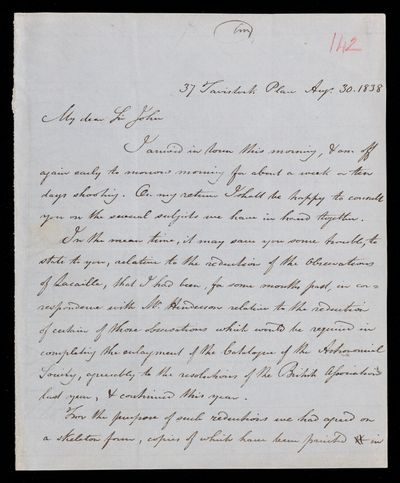 142
37 Tavistock Place Augt. 30. 1838
My dear Sir John
I arrived in town this morning, & am off
again early to morrow morning for about a week or ten
days shooting. On my return I shall be happy to consult
you on the several subjects we have in hand together.
In the mean time, it may save you some trouble, to
state to you, relative to the reduction of the Observations
of Lacaille, that I had been, for some months past, in cor=
respondence with Mr. Henderson relative to the reduction
of certain of those observations which would be required in
completing the enlargement of the Catalogue of the Astronomical
Society, agreeably to the resolutions of the British Association
last year, & continued this year.
For the purpose of such reductions we had agreed on
a skeleton form, copies of which have been printed in